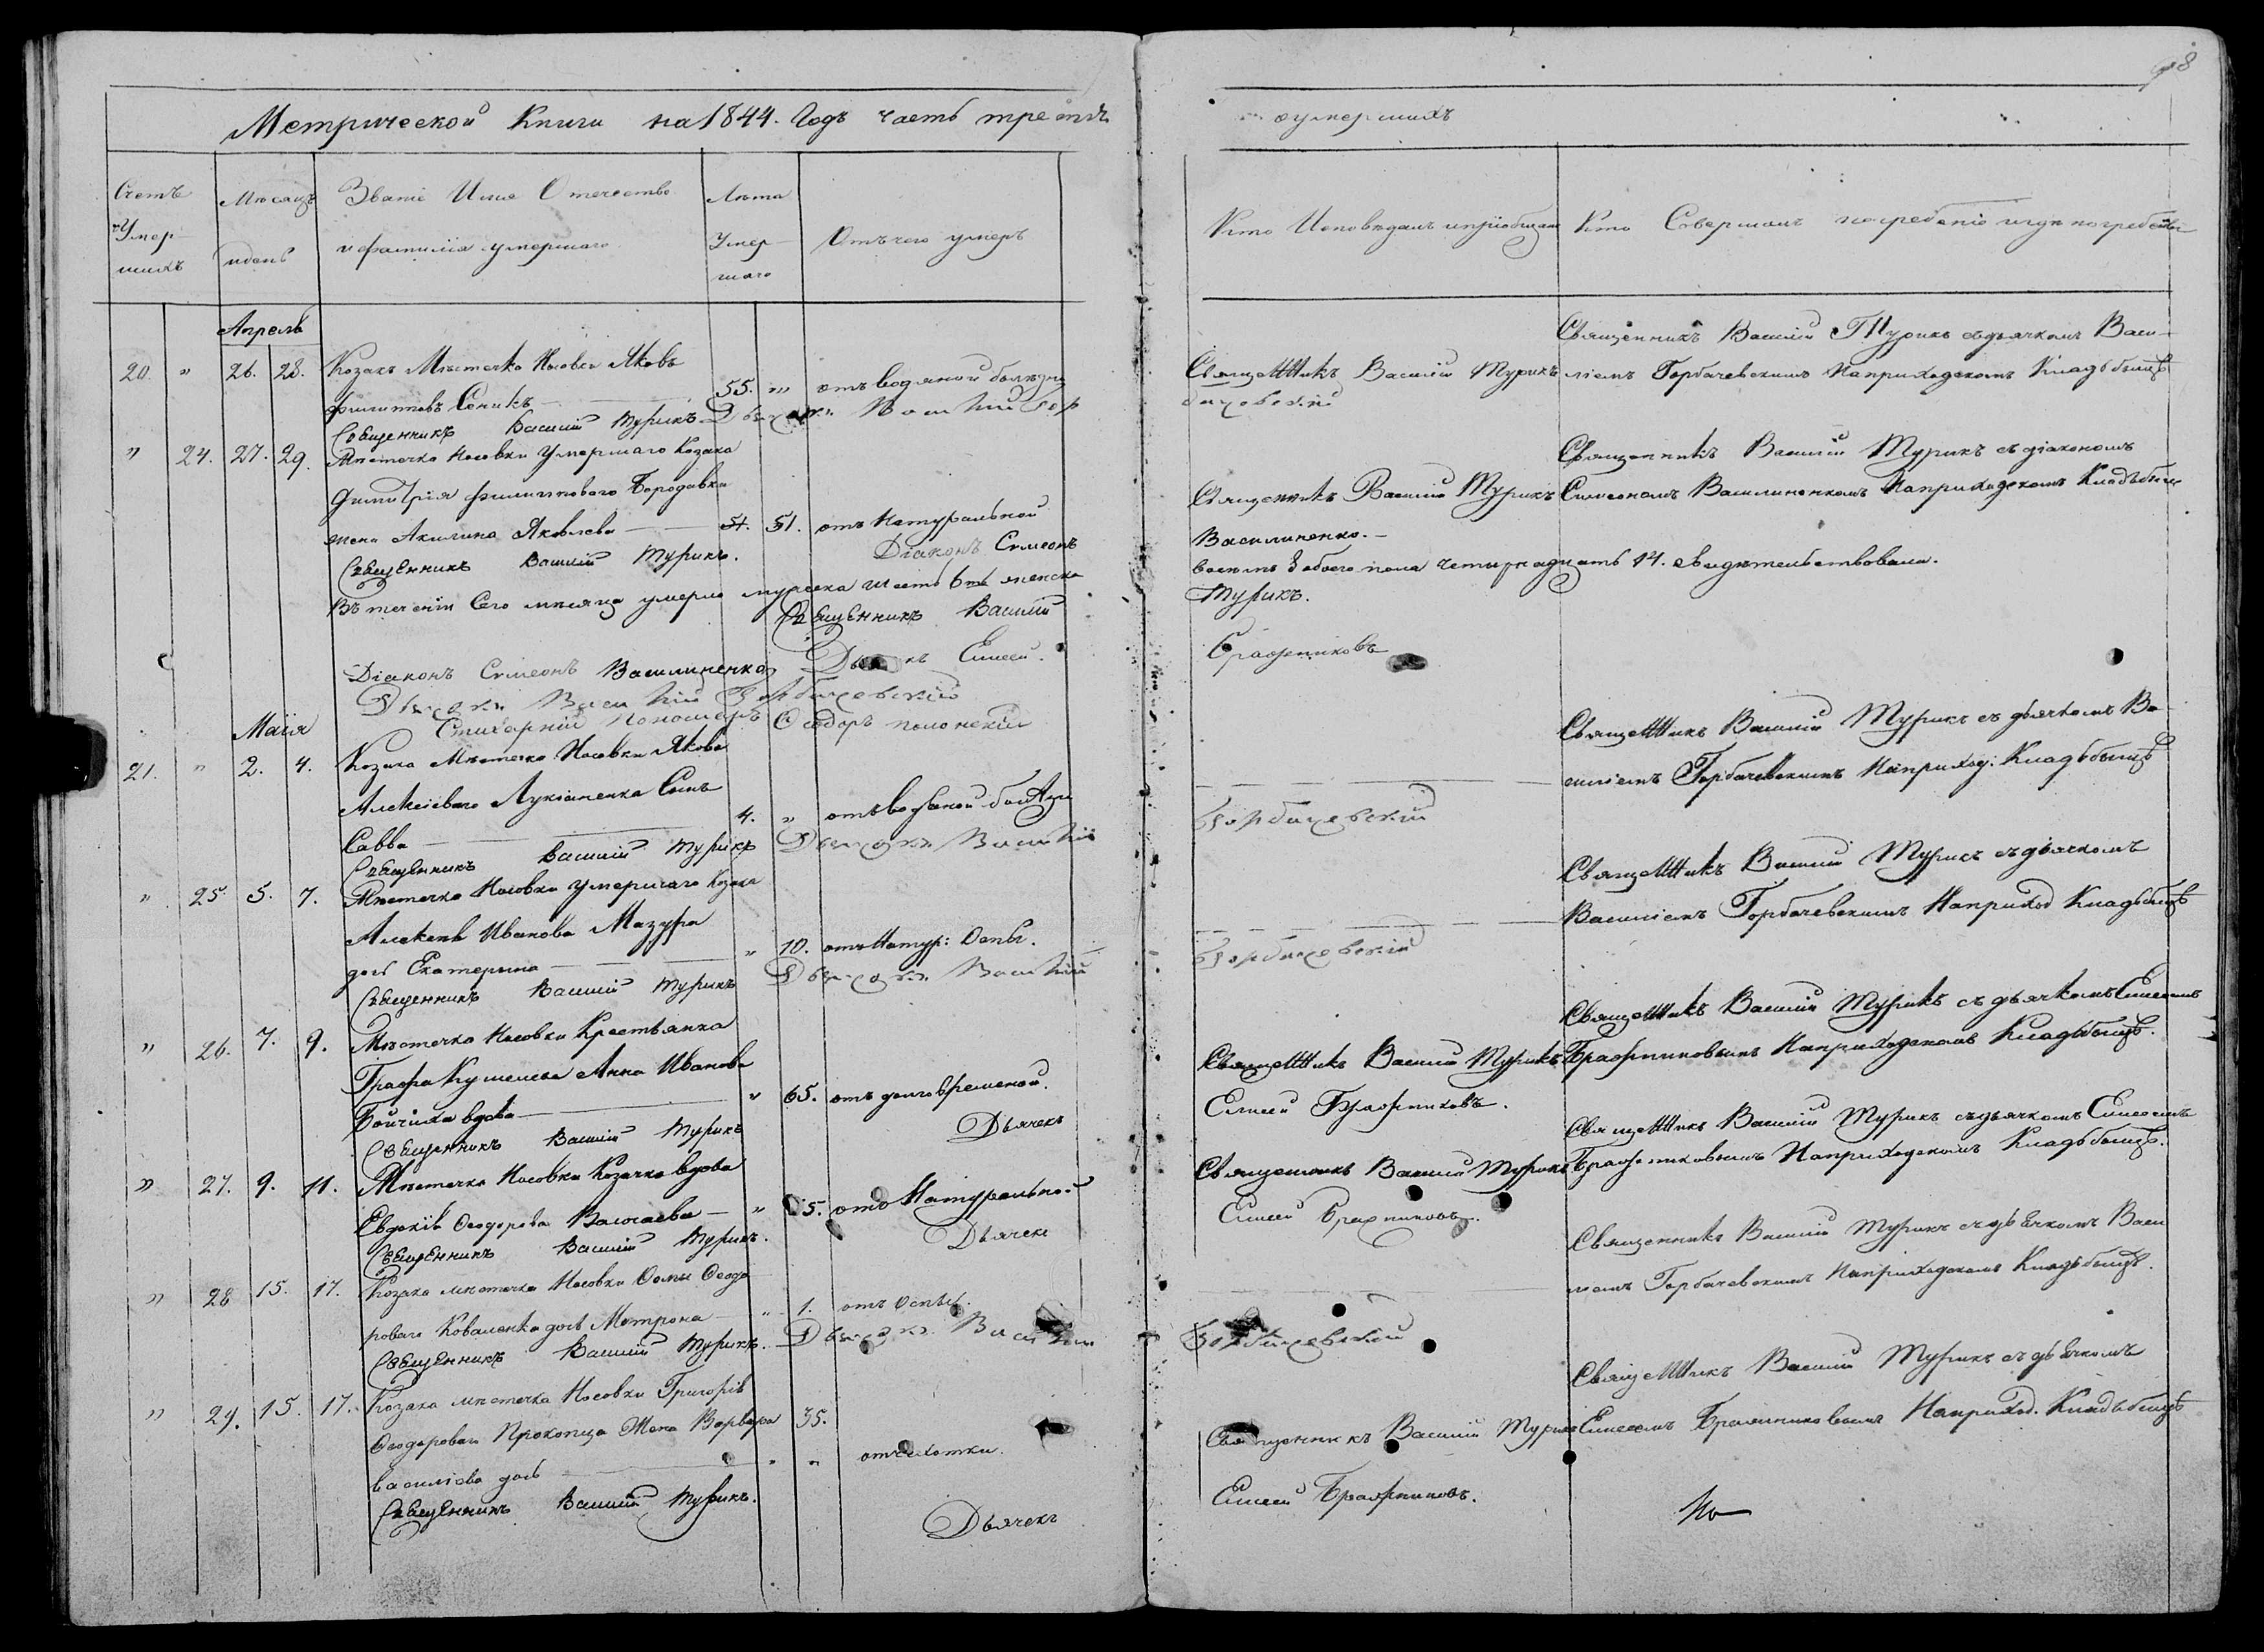 98
Метрической Книги на 1844. Годъ часть третія
о умершихъ
Счетъ Умершихъ
Мѣсяцъ и день
Званіе Имя Отечество
и фамилія умершаго
Лѣта Умершаго
Отъ чего умеръ
Кто Исповѣдалъ и пріобщалъ
Кто Совершалъ погребеніе и гдѣ погребены
Апрель
20. " 26. 28. Козакъ Мѣстечка Носовки Яковъ
Филиповъ Сеникъ 55. " отъ водяной болѣзни
Священникъ Василій Турикъ Дьячокъ Василій Гор
Священникъ Василій Турикъ
бачевскій
Священникъ Василій Турикъ съ дьячкомъ Васи-
ліемъ Горбачевскимъ На приходскомъ Кладьбыщѣ
" 24. 27. 29. Мѣстечка Носовки Умершаго Козака
Димитрія Филиповаго Бородавки
жена Акилина Яковлева 51. 51. отъ Натуральной
Священникъ Василій Турикъ. Діаконъ Симеонъ
Священникъ Василій Турикъ
Василиненко.
Священникъ Василій Турикъ съ діакономъ
Симеономъ Василиненкомъ На приходскомъ Кладьбыщѣ
Въ теченіи Сего мѣсяца умерло мужеска шесть 6ть женска
восемь 8 обоего пола четырнадцать 14. свидѣтельствовали.
Священникъ Василій
Турикъ.
Діаконъ Симеонъ Василиненко
Дьячокъ Елисей
Бражниковъ
Дьячокъ Василій Горбачевскій
Стихарній Пономарь Феодоръ
Маія
21. " 2. 4. Козака Мѣстечка Носовки Якова
Алексіеваго Лукіаненка Сынъ
Савва 4. " отъ водяной болѣзни
Священникъ Василій Турикъ Дьячокъ Василій
Горбачевскій
Священникъ Василій Турикъ съ дьячкомъ Ва-
силіемъ Горбачевскимъ На приход: Кладьбыщѣ
" 25. 5. 7. Мѣстечка Носовки умершаго Козака
Алексѣя Иванова Мазура
дочь Екатерина " 10. отъ Натур: Оспы.
Священникъ Василій Турикъ Дьячокъ Василій
Горбачевскій
Священникъ Василій Турикъ съ дьячкомъ
Василіемъ Горбачевскимъ На приход Кладьбыщѣ
" 26. 7. 9. Мѣстечка Носовки Крестьянка
Графа Кушелева Анна Иванова
Бойчиха вдова " 65. отъ долговременой.
Священникъ Василій Турикъ Дьячекъ
Священникъ Василій Турикъ
Елисей Бражниковъ.
Священникъ Василій Турикъ съ дьячкомъ Елисеемъ
Бражниковымъ На приходскомъ Кладьбыщѣ.
" 27. 9. 11. Мѣстечка Носовки Козачка вдова
Евдокія Феодорова " 5. отъ Натуральной
Священникъ Василій Турикъ. Дьячекъ
Священникъ Василій Турикъ
Елисей Бражниковъ.
Священникъ Василій Турикъ съ дьячкомъ Елисеемъ
Бражниковымъ На приходскомъ Кладьбыщѣ.
" 28 15. 17. Козака мѣстечка Носовки Фомы Феодо
роваго Коваленка дочь Мотрона " 1. отъ Оспы.
Священникъ Василій Турикъ. Дьячокъ Василій
Горбачевскій
Священникъ Василій Турикъ съ дьячкомъ Васи
ліемъ Горбачевскимъ На приходскомъ Кладьбыщѣ.
" 29. 15. 17. Козака мѣстечка Носовки Григорія
Феодороваго Прокопца Жена Варвара 35.
Василіева дочь " " отъ чахотки.
Священникъ Василій Турикъ. Дьячекъ
Священникъ Василій Турикъ
Елисей Бражниковъ.
Священникъ Василій Турикъ съ дьячкомъ
Елисеемъ Бражниковымъ На приход. Кладьбыщѣ